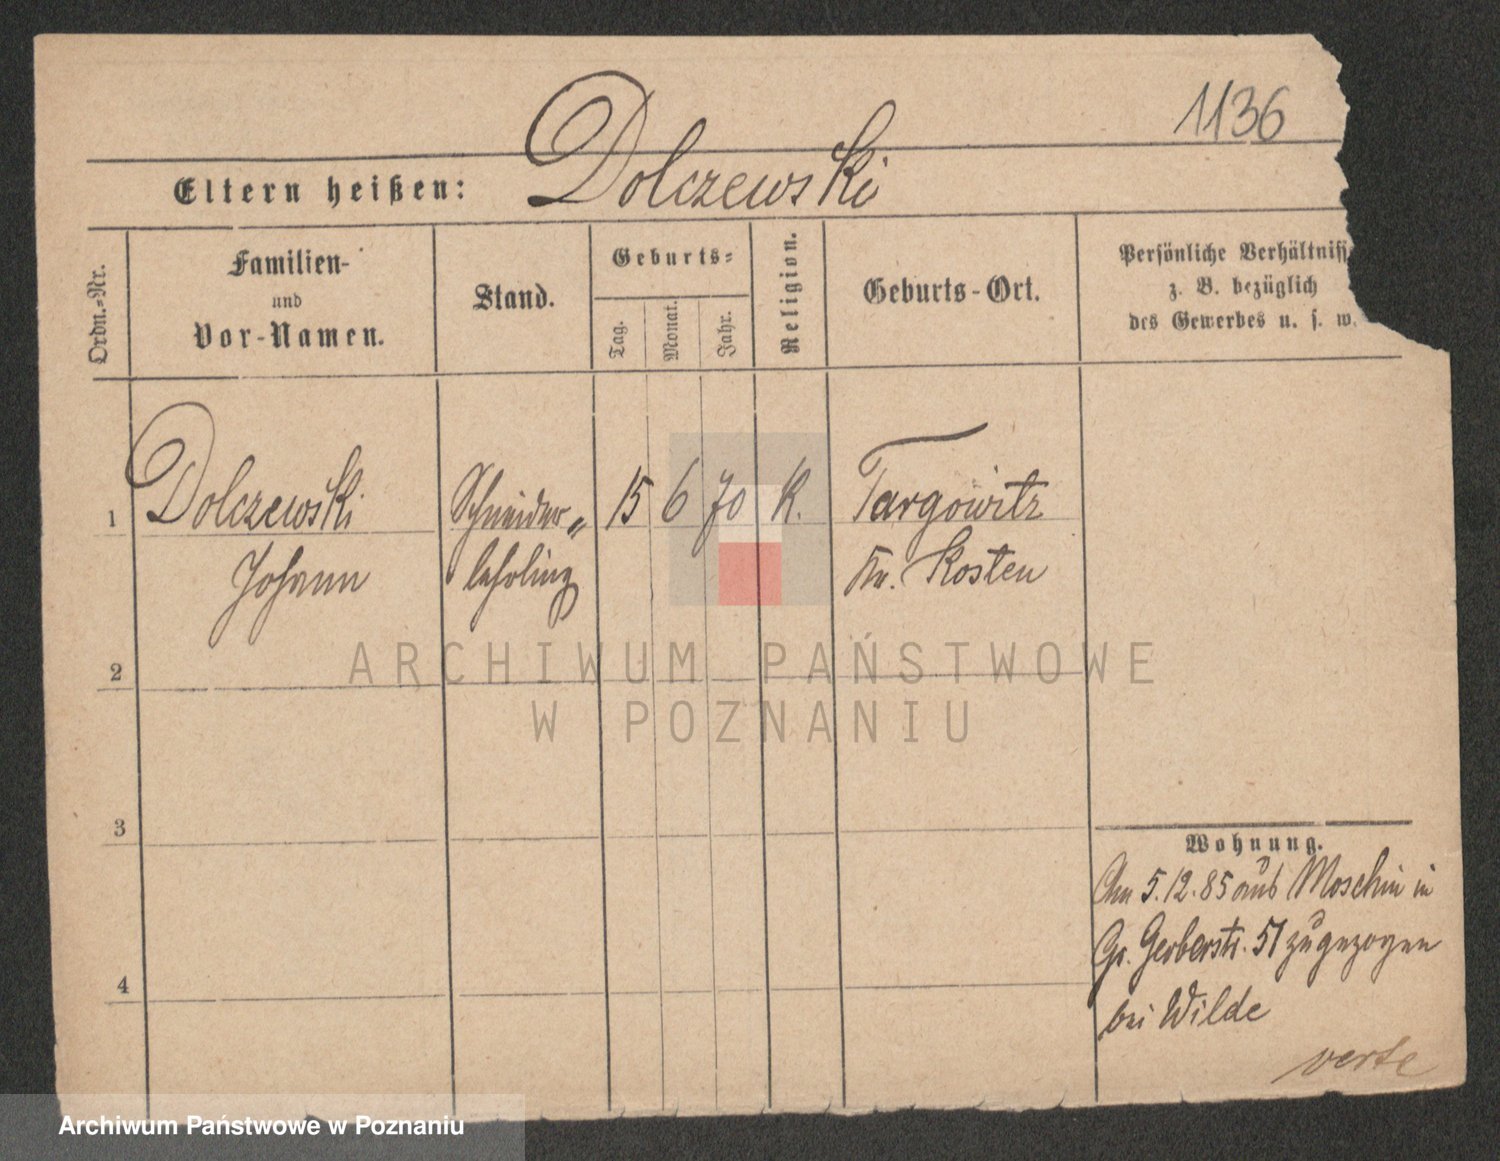 1136
Eltern heißen: Dolczewski
Ordn.-Nr.
Familien-
und
Vor-Namen.
Stand.
Geburts-
Tag.
Monat.
Jahr.
Religion.
Geburts-Ort.
Persönliche Verhältniss
z. B. bezüglich
des Gewerbes u. s. w.
1 Dolczewski Schneider= 15 6 70 K. Targowitz
Johann lehrling Kr. Kosten
2
ARCHIWUM PAŃSTWOWE
W POZNANIU
3
Wohnung.
Am 5.12.85 aus Moschin in
Gr. Gerberstr. 51 zugezogen
bei Wilde
4
verte
Archiwum Państwowe w Poznaniu